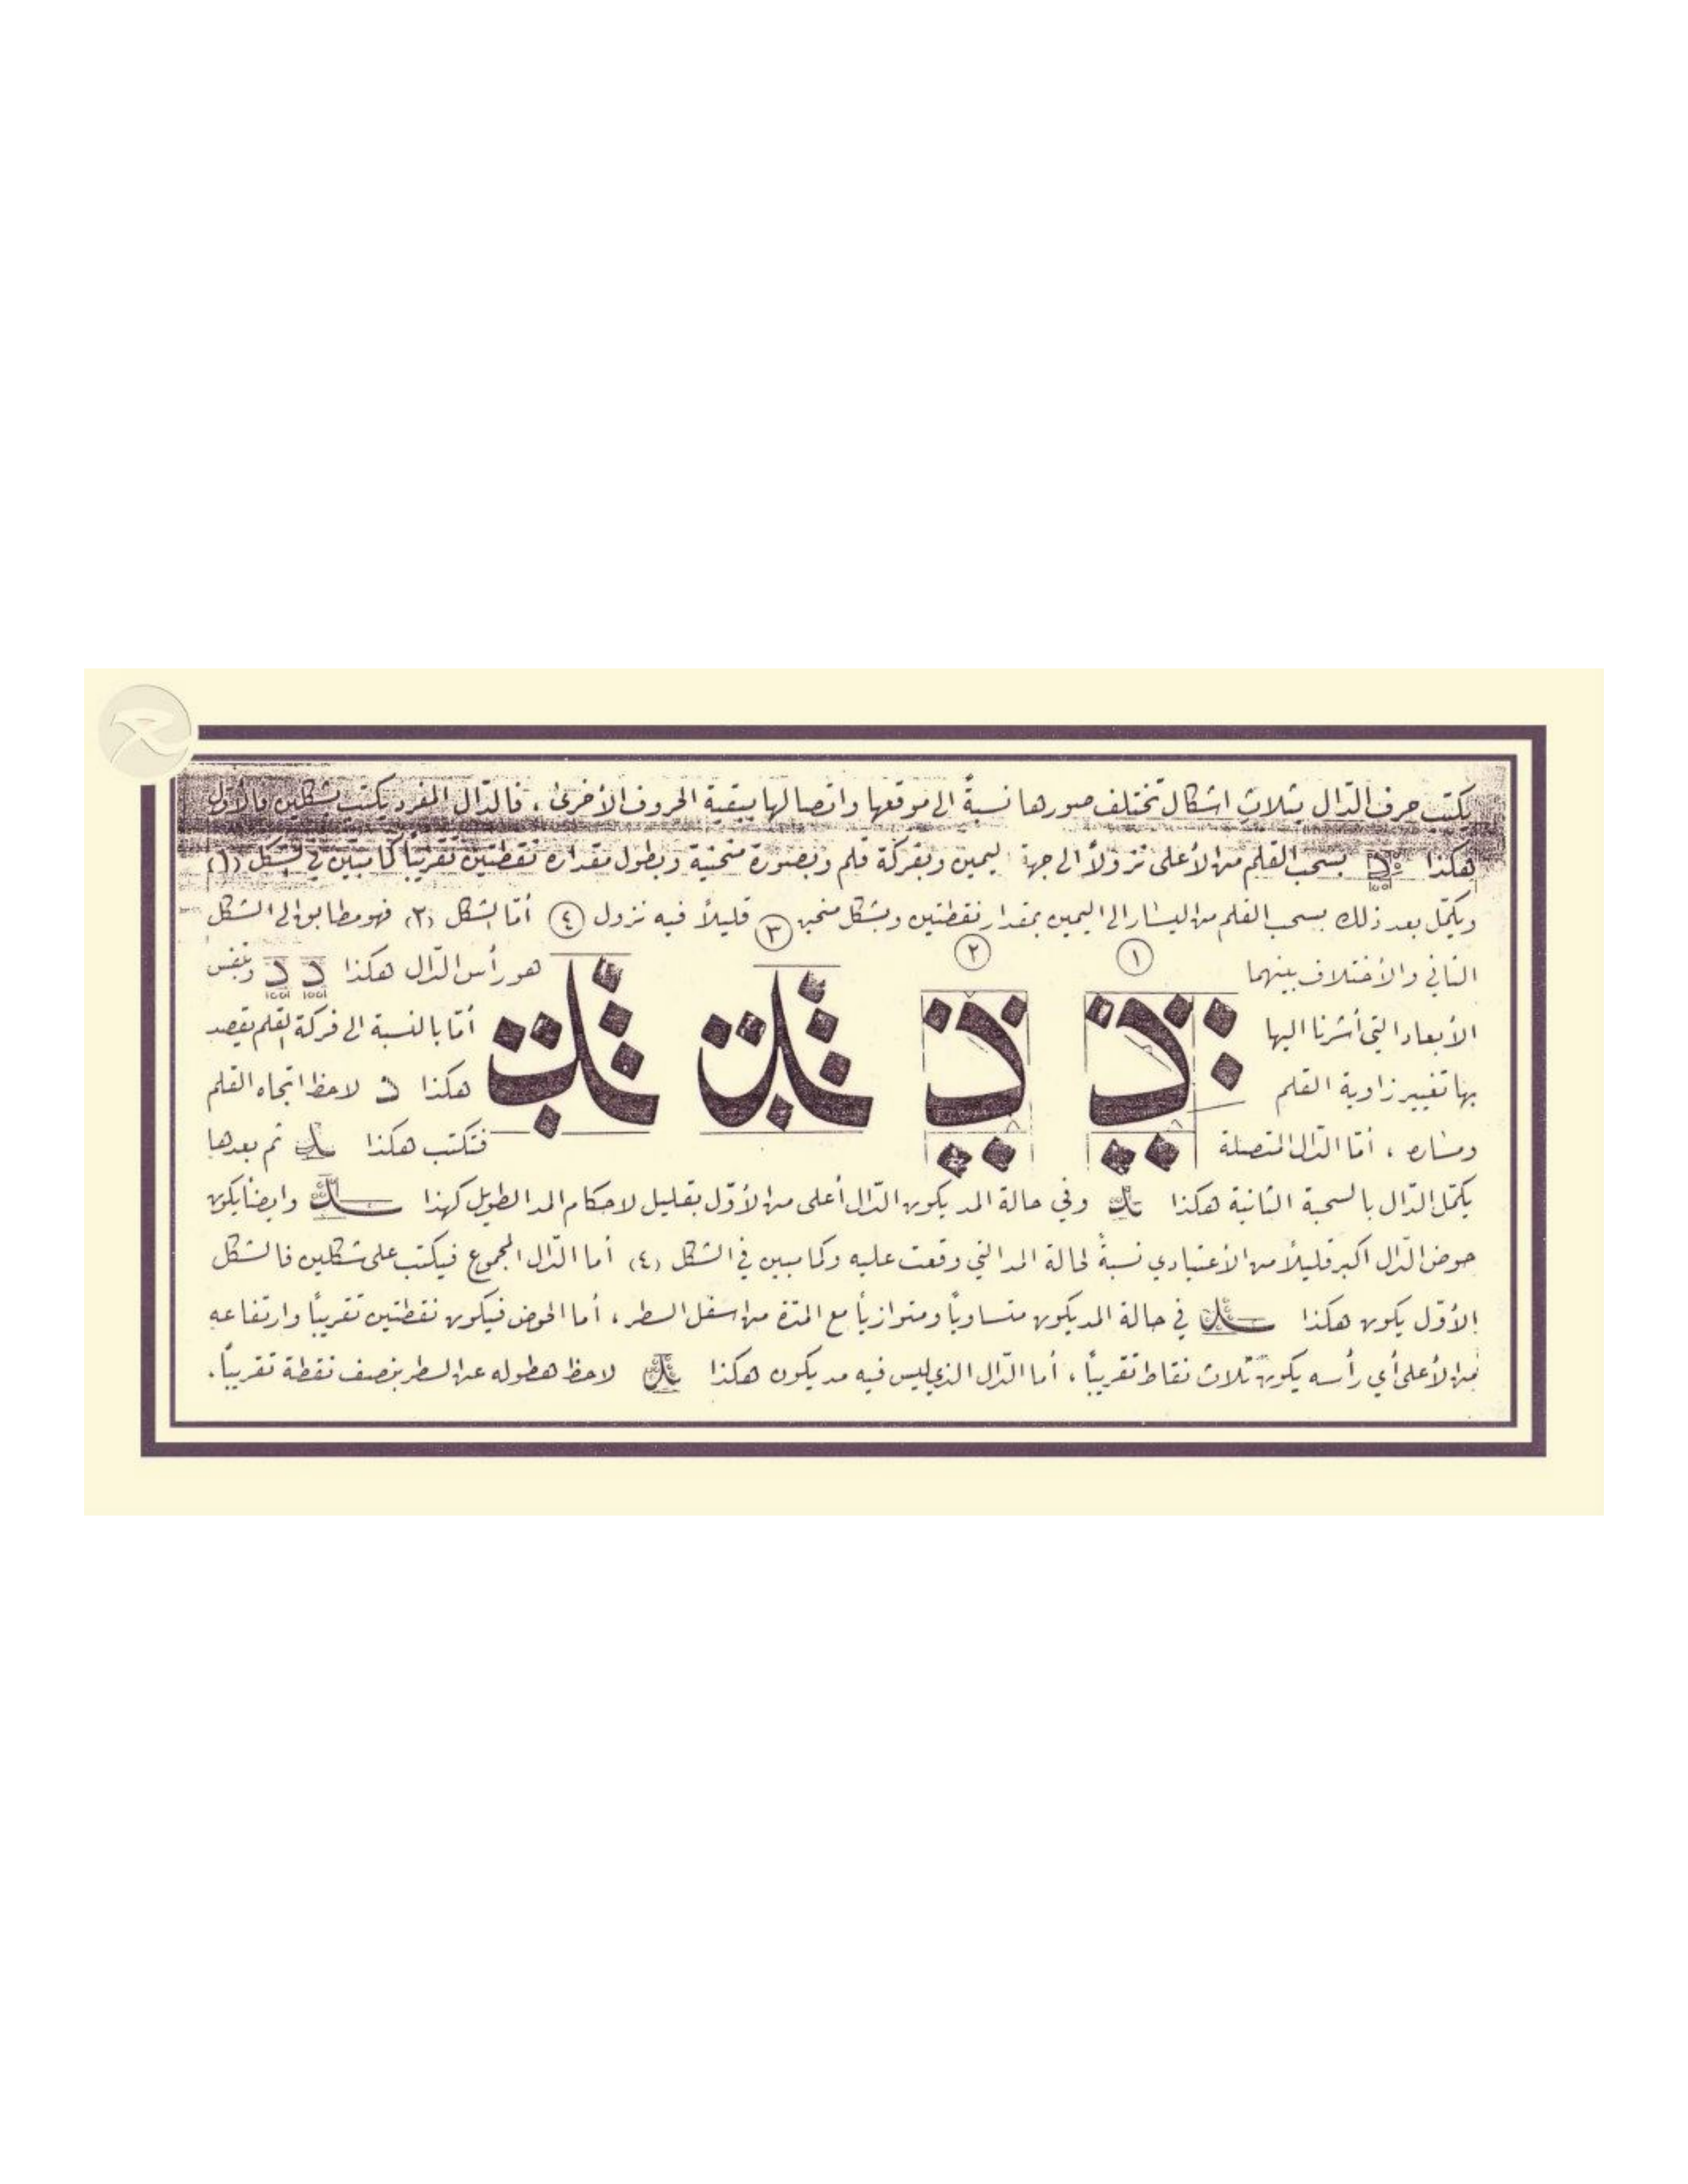 يكتب حرف الدّال بثلاثِ اشكال تختلف صورها نسبةً الى موقعها واتصالها ببقية الحروف الأخرىٰ ، فالدّال المفرد يكتب بشكلين فالأوّل
هكذا د بسحب القلم من الأعلى نزولاً الى جهة اليمين وبفركة قلم وبصورة منحنية وبطول مقداره نقطتين تقريباً كما مبيّن في الشكل (١)
ويكمّل بعد ذلك بسحب القلم من اليسار الى اليمين بمقدار نقطتين وبشكل منحنٍ ٣ قليلاً فيه نزول ٤ أمّا الشكل (٢) فهو مطابق الى الشكل
٢ ١
الثاني والأختلاف بينهما هو رأس الدّال هكذا د د وبنفس
الأبعاد التي أشرنا اليها أمّا بالنسبة الى فركة القلم يقصد
بها تغيير زاوية القلم هكذا د لاحظ اتجاه القلم
ومساره ، أمّا الدّال المتصلة فتكتب هكذا ثم بعدها
يكمّل الدّال بالسحبة الثانية هكذا وفي حالة المد يكون الدّال أعلى من الأوّل بقليل لاحكام المد الطويل كهذا وايضاً يكون
حوض الدّال اكبر قليلاً من الأعتيادي نسبةً لحالة المد التي وقعت عليه وكما مبين في الشكل (٤) أما الدّال المجموع فيكتب على شكلين فالشكل
الأوّل يكون هكذا في حالة المد يكون متساوياً ومتوازياً مع المدّة من اسفل السطر ، أما الحوض فيكون نقطتين تقريباً وارتفاعه
من الأعلى أي رأسه يكون ثلاث نقاط تقريباً ، أما الدّال الذي ليس فيه مد يكون هكذا لاحظ هطوله عن السطر بنصف نقطة تقريباً .